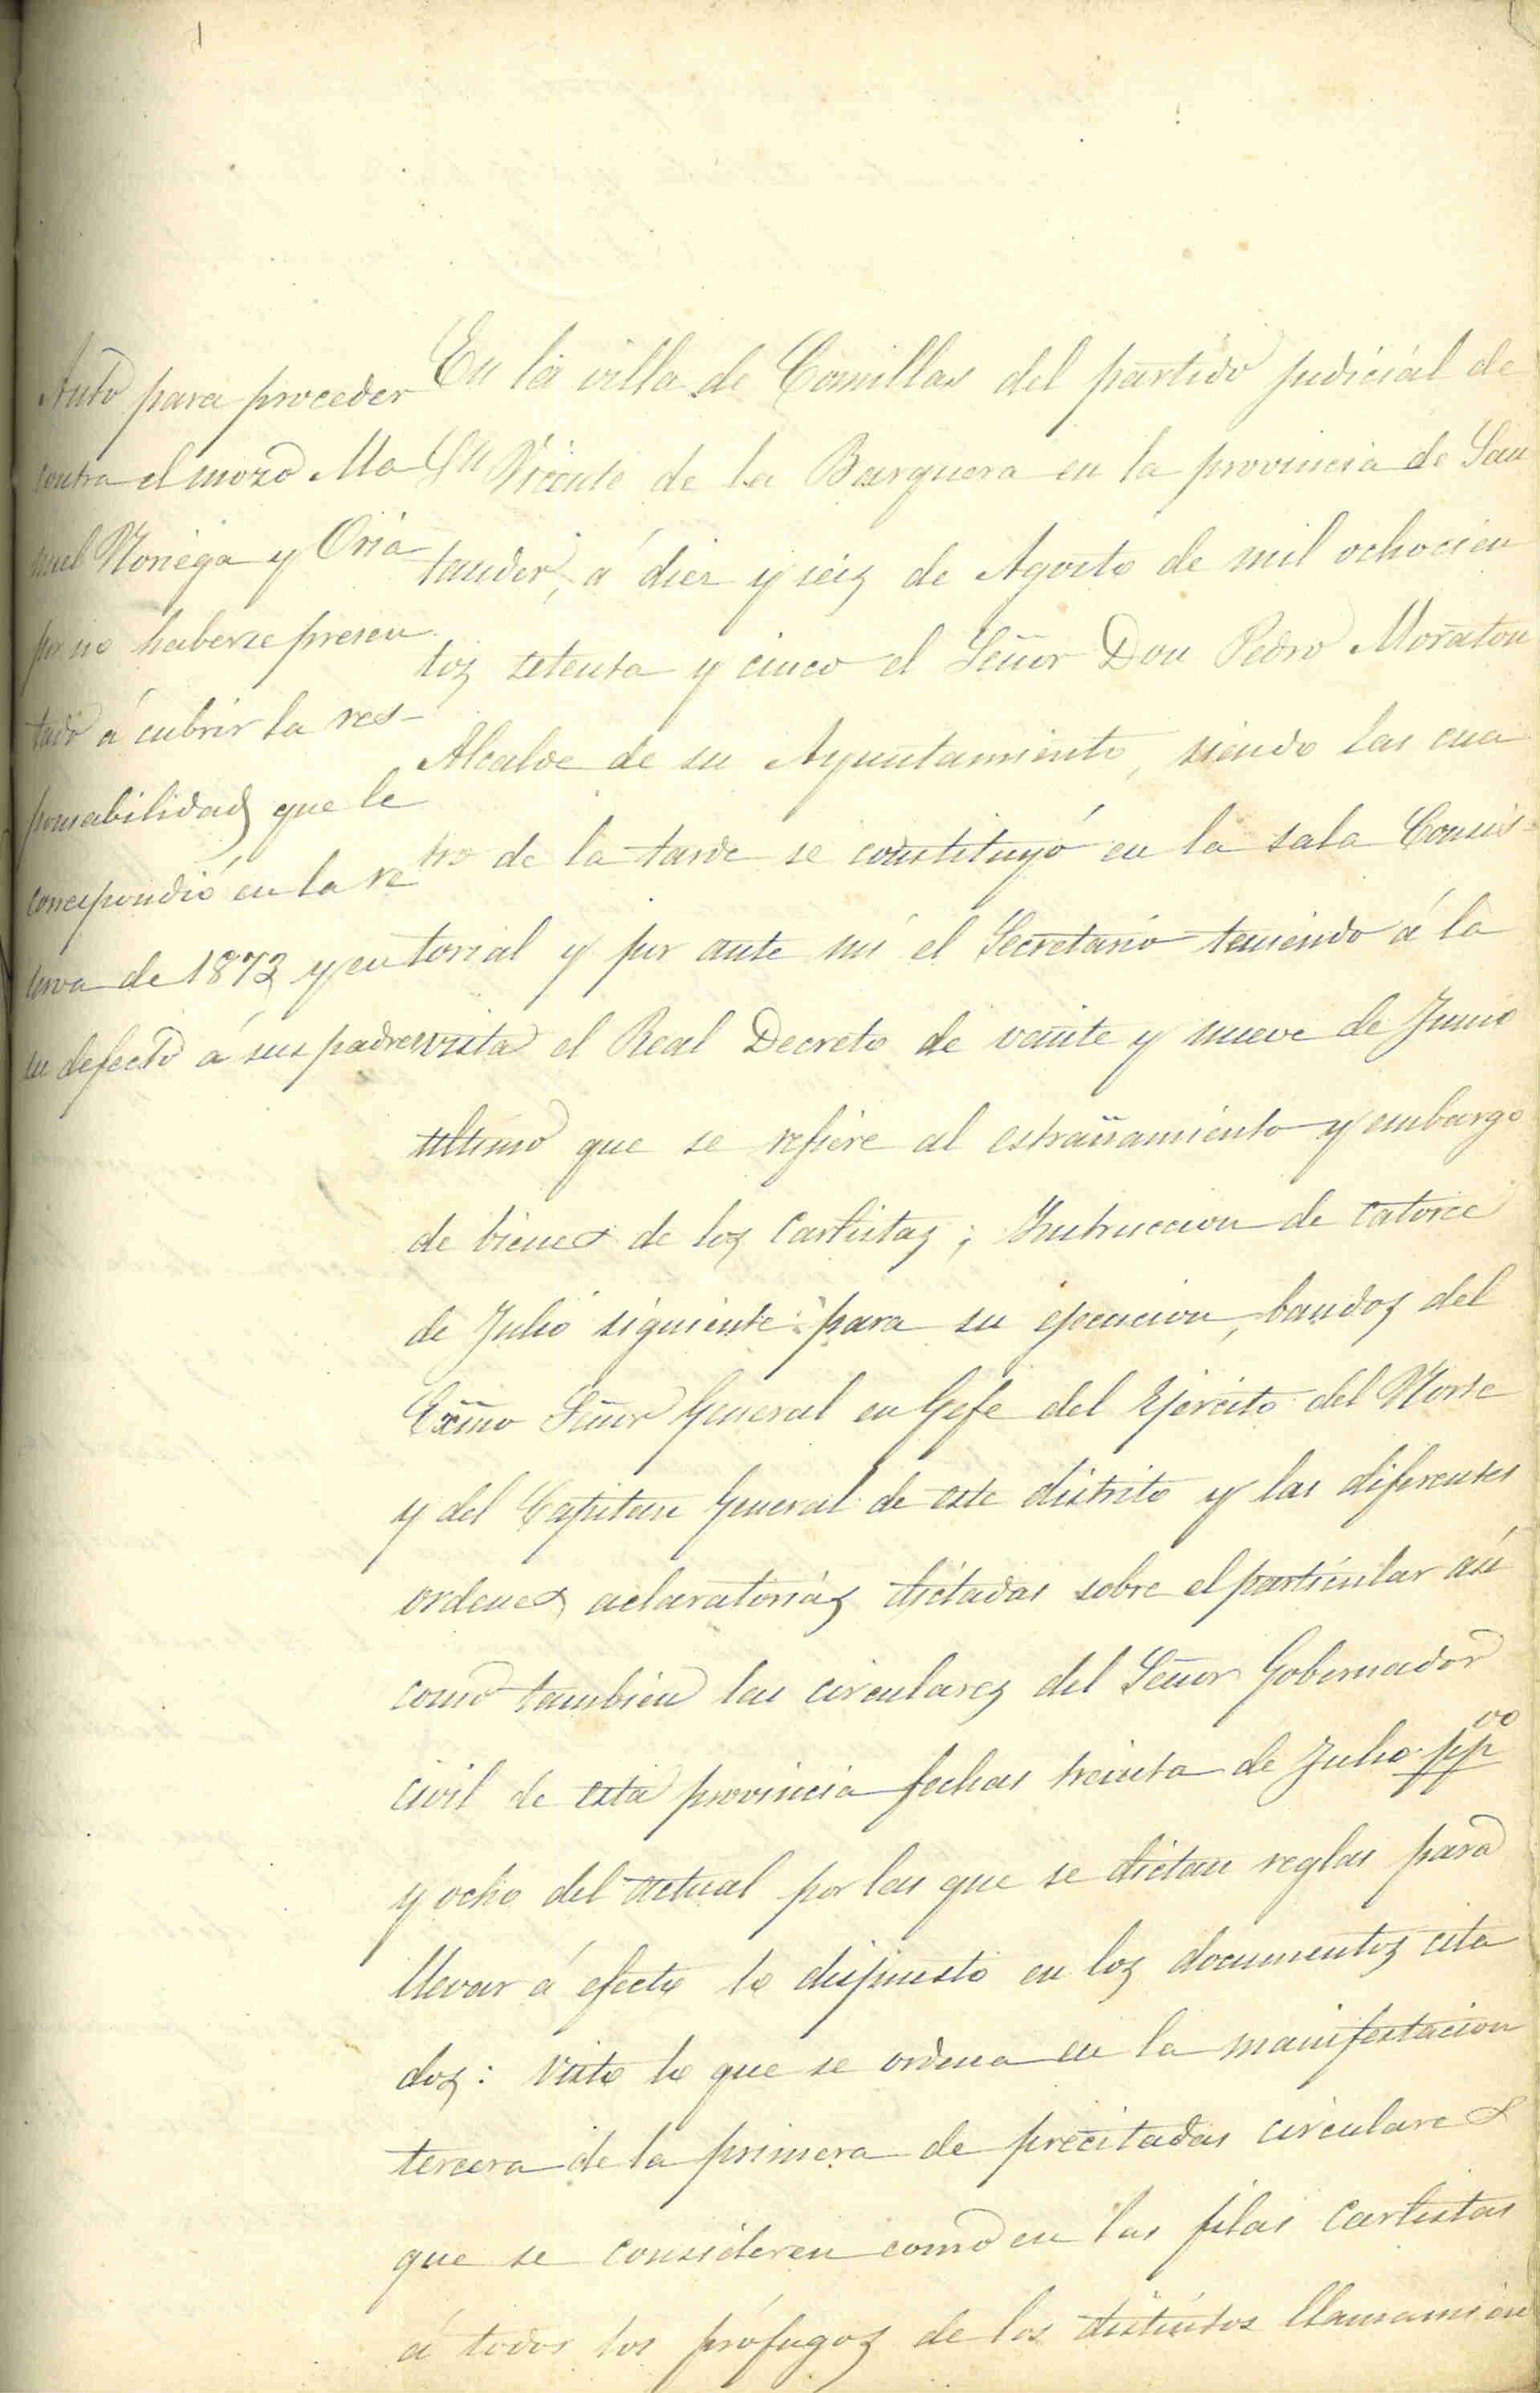 Auto para proceder
contra el mozo Ma
nuel Noriega y Oria
por no haberse presen
tado á cubrir la res-
ponsabilidad que le
correspondió en la re
serva de 1873 y en
su defecto á sus padres
En la villa de Comillas del partido judicial de
Sn Vicente de la Barquera en la provincia de San
tander, á diez y seis de Agosto de mil ochocien
tos setenta y cinco el Señor Don Pedro Moraton
Alcalde de su Ayuntamiento, siendo las cua
tro de la tarde se constituyó en la sala Consis-
torial y por ante mi el Secretario teniendo á la
vista el Real Decreto de veinte y nueve de Junio
ultimo que se refiere al estrañamiento y embargo
de bienes de los Carlistas; Instruccion de catorce
de Julio siguiente para su ejecucion, bandos del
Exmo Señor General en Gefe del Ejército del Norte
y del Capitan General de este distrito y las diferentes
ordenes aclaratorias dictadas sobre el particular asi
como tambien las circulares del Señor Gobernador
civil de esta provincia fechas treinta de Julio ppoo
y ocho del actual por las que se dictan reglas para
llevar á efecto lo dispuesto en los documentos cita
dos: visto lo que se ordena en la manifestacion
tercera de la primera de precitadas circulares
que se consideren como en las filas Carlistas
á todos los prófugos de los distintos llamamien